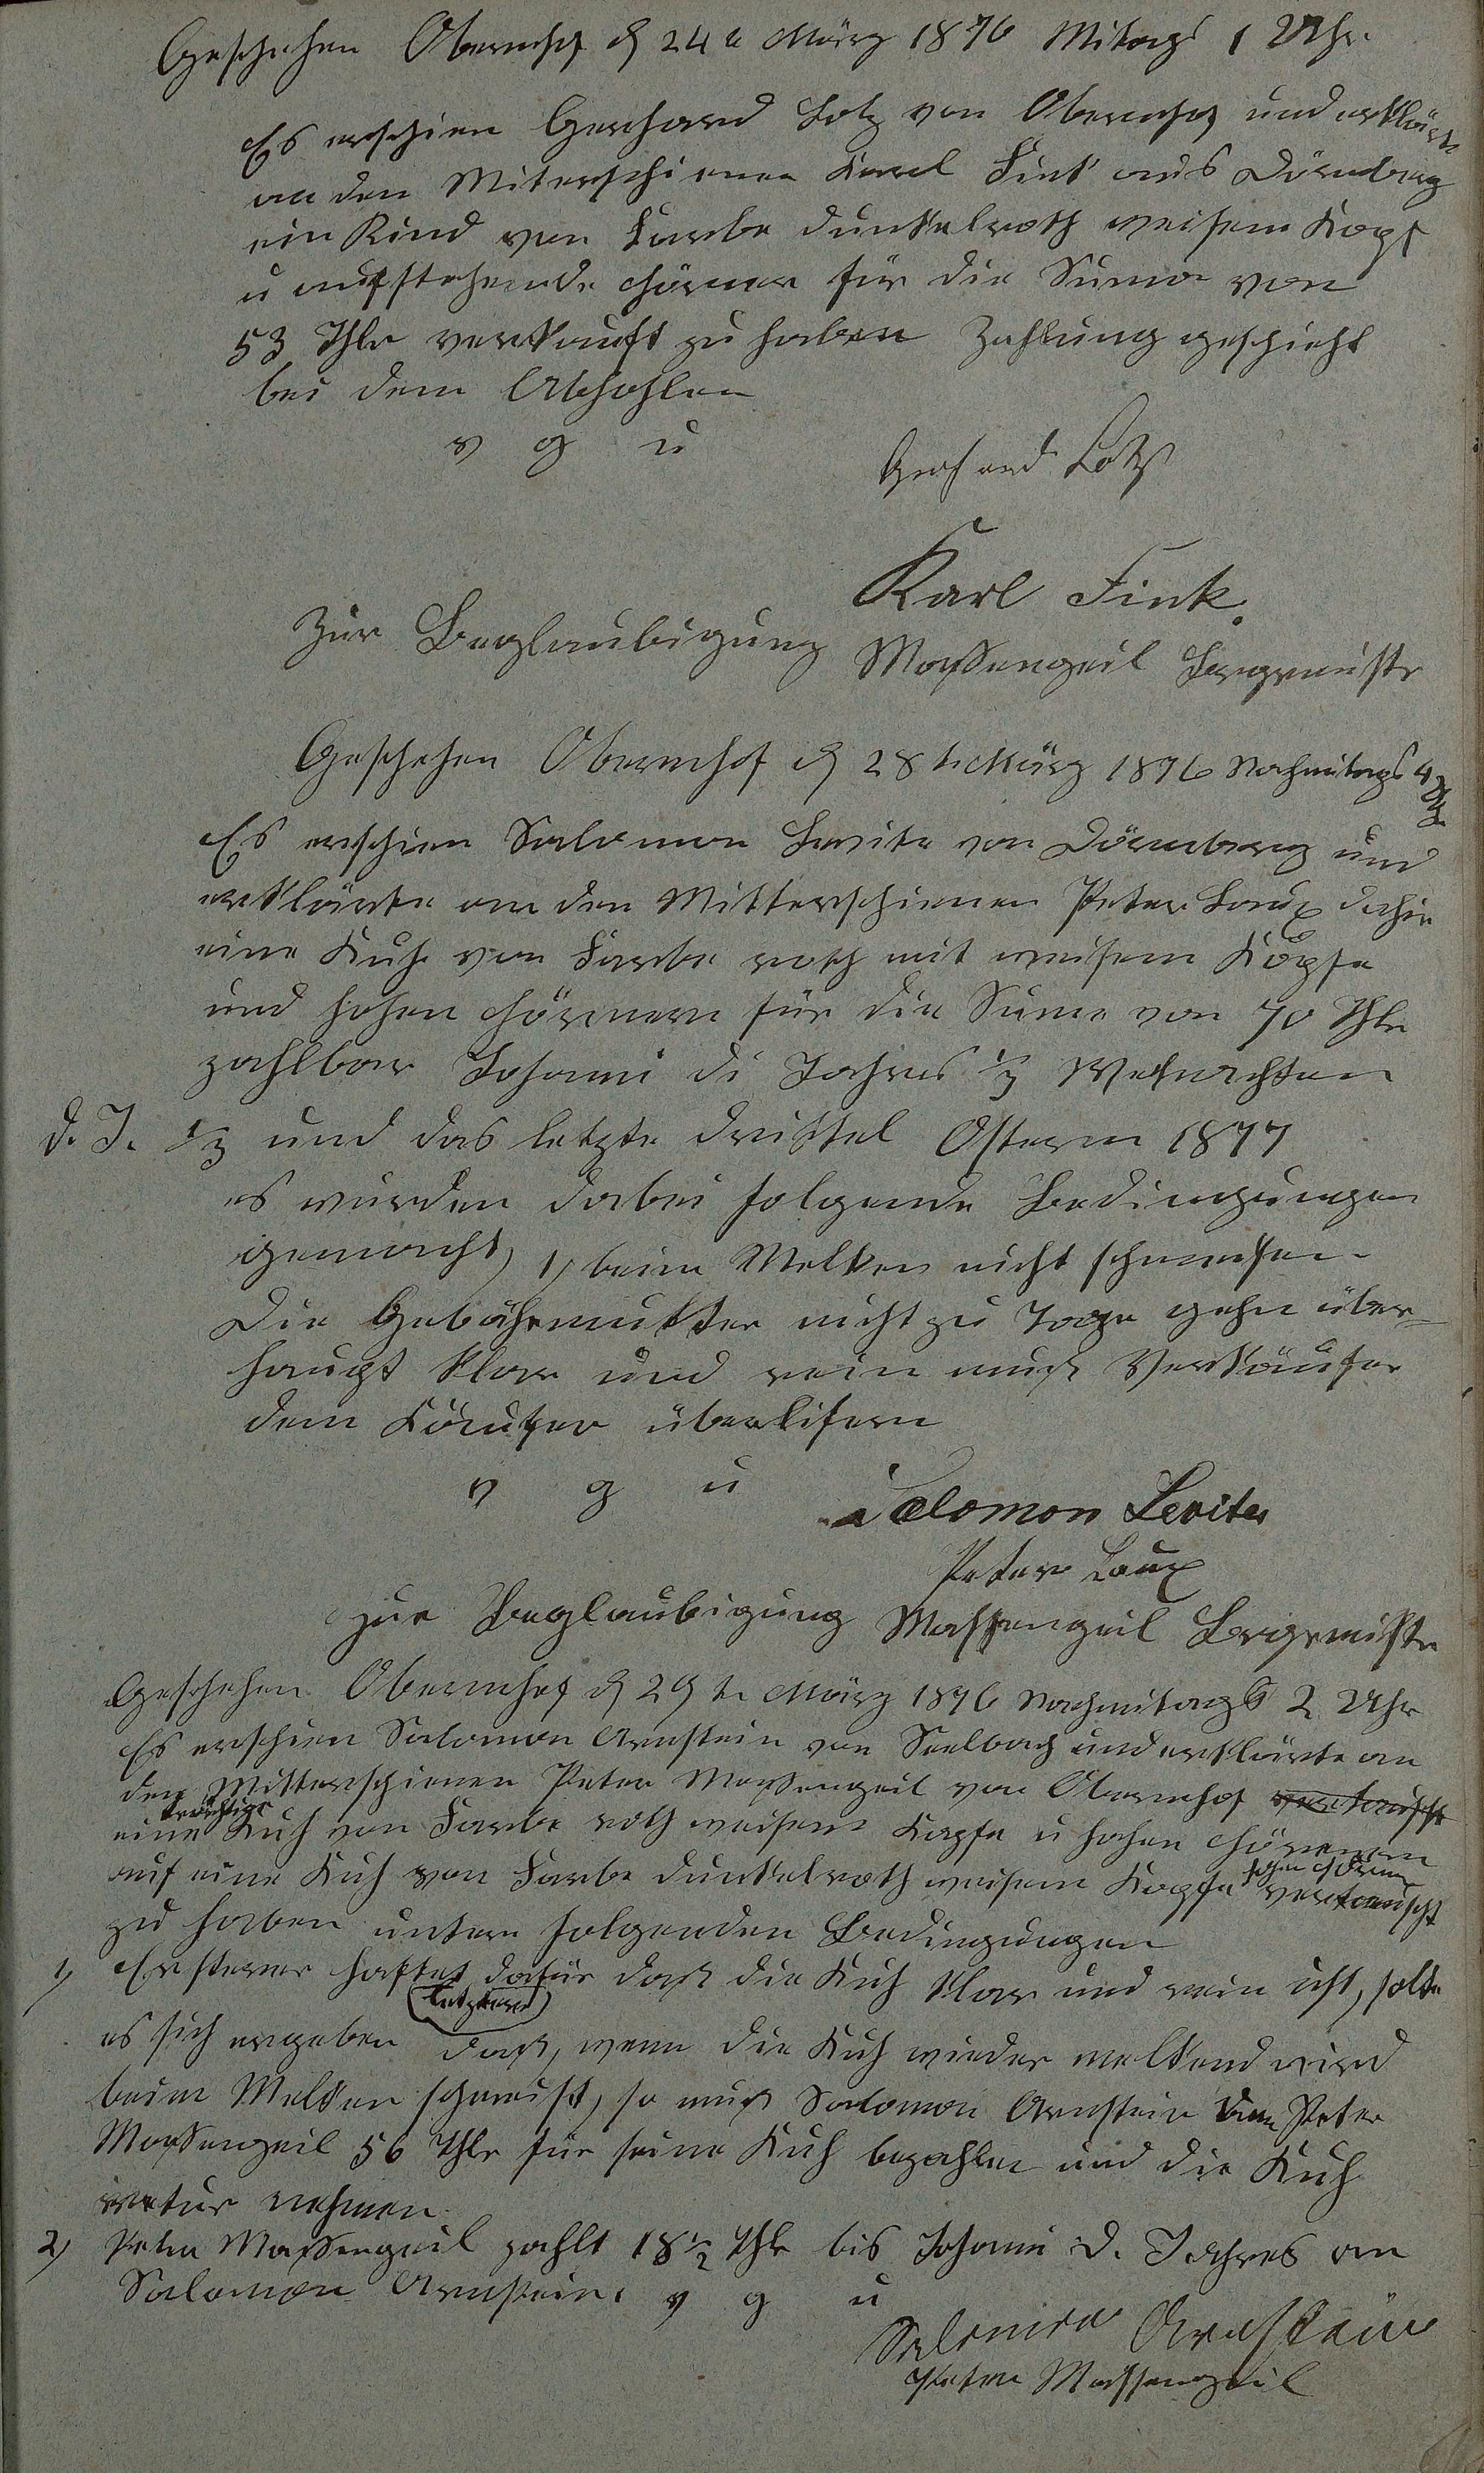 Geschehen Obernhof d 24te März 1876 Mitags 1 Uhr.
Es erschien Gerhard Lotz von Obernhof und erklärte
an den Miterschienen Karl Fink aus Dörnberg
ein Rind von Farbe dunkelroth weisem Kopf
u aufstehende Hörner für die Suma von
53 Thlr verkauft zu haben Zahlung geschieht
bei dem Abhohlen
v g u
Gerhard Lotz
Karl Fink.
Zur Beglaubigung Massengeil Bürgermeistr
Geschehen Obernhof d 28te März 1876 Nachmitags 4 Uhr
Es erschien Salomon Levita von Dörnberg und
erklärte an den Mitterschienen Peter Laux dahir
eine Kuh von Farbe roth mit weisem Kopfe
und hohen Hörnern für die Sume von 70 Thlr
zahlbar Johanni di Jahres 1/3 Weihnachten
d. J. 1/3 und das letzte drittel Ostern 1877
es wurden dabei folgende Bedingungen
gemacht, 1, beim Melken nicht schmeisen
Die Gebährmutter nicht zu Tage gehn über-
haupt klar und rein muß Verkäufer
dem Käufer überlifern
v g u
Salomon Levita
Peter Laux
zur Beglaubigung Massengeil Bürgermeistr
Geschehen Obernhof d 29te März 1876 Nachmitags 2 Uhr
Es erschien Salomon Arnstein von Seelbach und erklärte an
den Mitterschienen Peter Massengeil von Obernhof vertauscht
trächtige
eine Kuh von Farbe roth weisem Kopfe u hohen Hörnern
auf eine Kuh von Farbe dunkelroth weisem Kopfe hohen Hörner vertauscht
zu haben untern folgenden Bedingungen
1, Ersterer haftet dafür daß die Kuh klar und rein ist, solte
(letztere)
es sich ergeben daß, wenn die Kuh wieder melkend wird
beim Melken schmeist, so muß Salomon Arnstein dem Peter
Massengeil 56 Thlr für seine Kuh bezahlen und die Kuh
retur nehmen
2, Peter Massengeil zahlt 18 1/2 Thlr bis Johanni d. Jahres an
Salomon Arnstein. v g u
Salomon Arnstein
Peter Massengeil